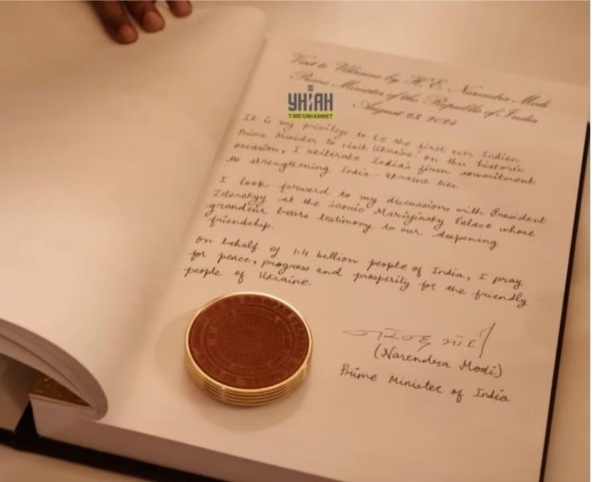 Visit to Ukraine by H. E. Narendra Modi
Prime Minister of the Republic of India
August 23, 2024
УНІАН
T.ME/UNIANNET
It is my privilege to be the first ever Indian
Prime Minister to visit Ukraine. On this historic
occasion, I reiterate India's firm commitment
to strengthening India - Ukraine ties.
I look forward to my discussions with President
Zelenskyy at the iconic Mariyinsky Palace whose
grandeur bears testimony to our deepening
friendship.
On behalf of 1.4 billion people of India, I pray
for peace, progress and prosperity for the friendly
people of Ukraine.
નરેન્દ્ર મોદી
(Narendra Modi)
Prime Minister of India